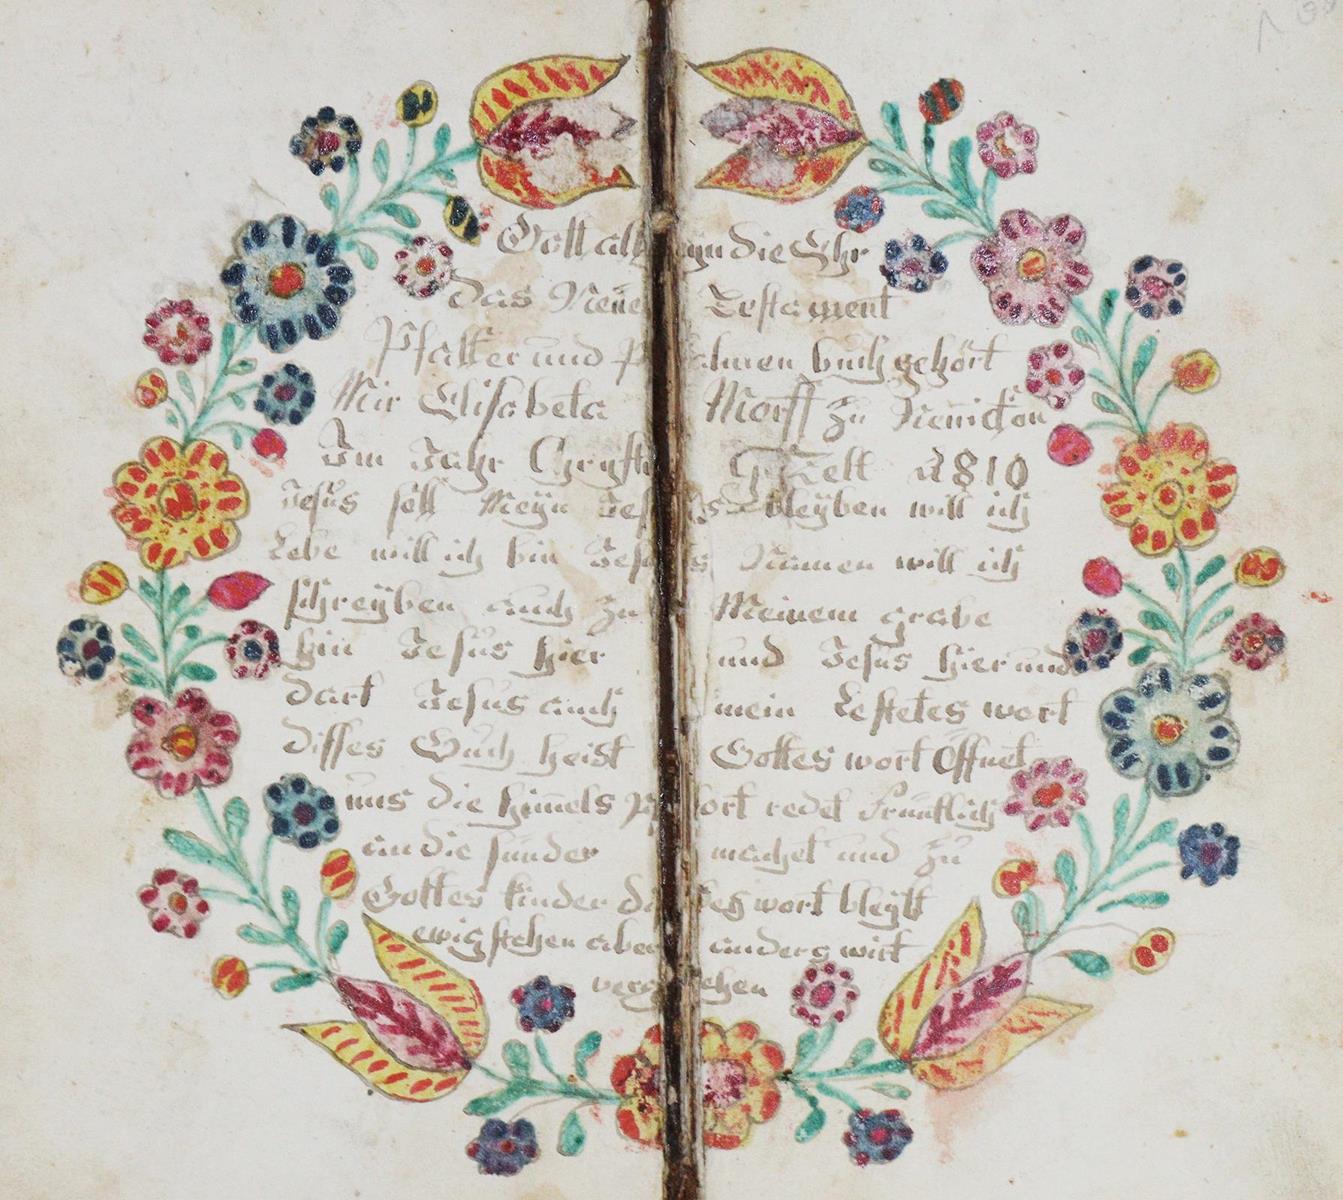 Gott all eyn die Ehr
das Neue Testament
Psalter und Psalmen buch gehört
Mir Elisabeta Morff zu Nenickon
Im Jahr Chryste Gzelt 1810
Jesus soll Meyn Jesus bleyben will ich
Lebe will ich bin Jesus Namen will ich
schreyben auch zu Meinem grabe
hin Jesus hier und Jesus hier und
dart Jesus auch mein Lestetes wort
disses Buch heist Gottes wort Öffnet
uns die himels port redet Früntlich
an die sünder machet und zu
Gottes kinder wort bleybt
ewig stehen aber anders wirt
vergehen